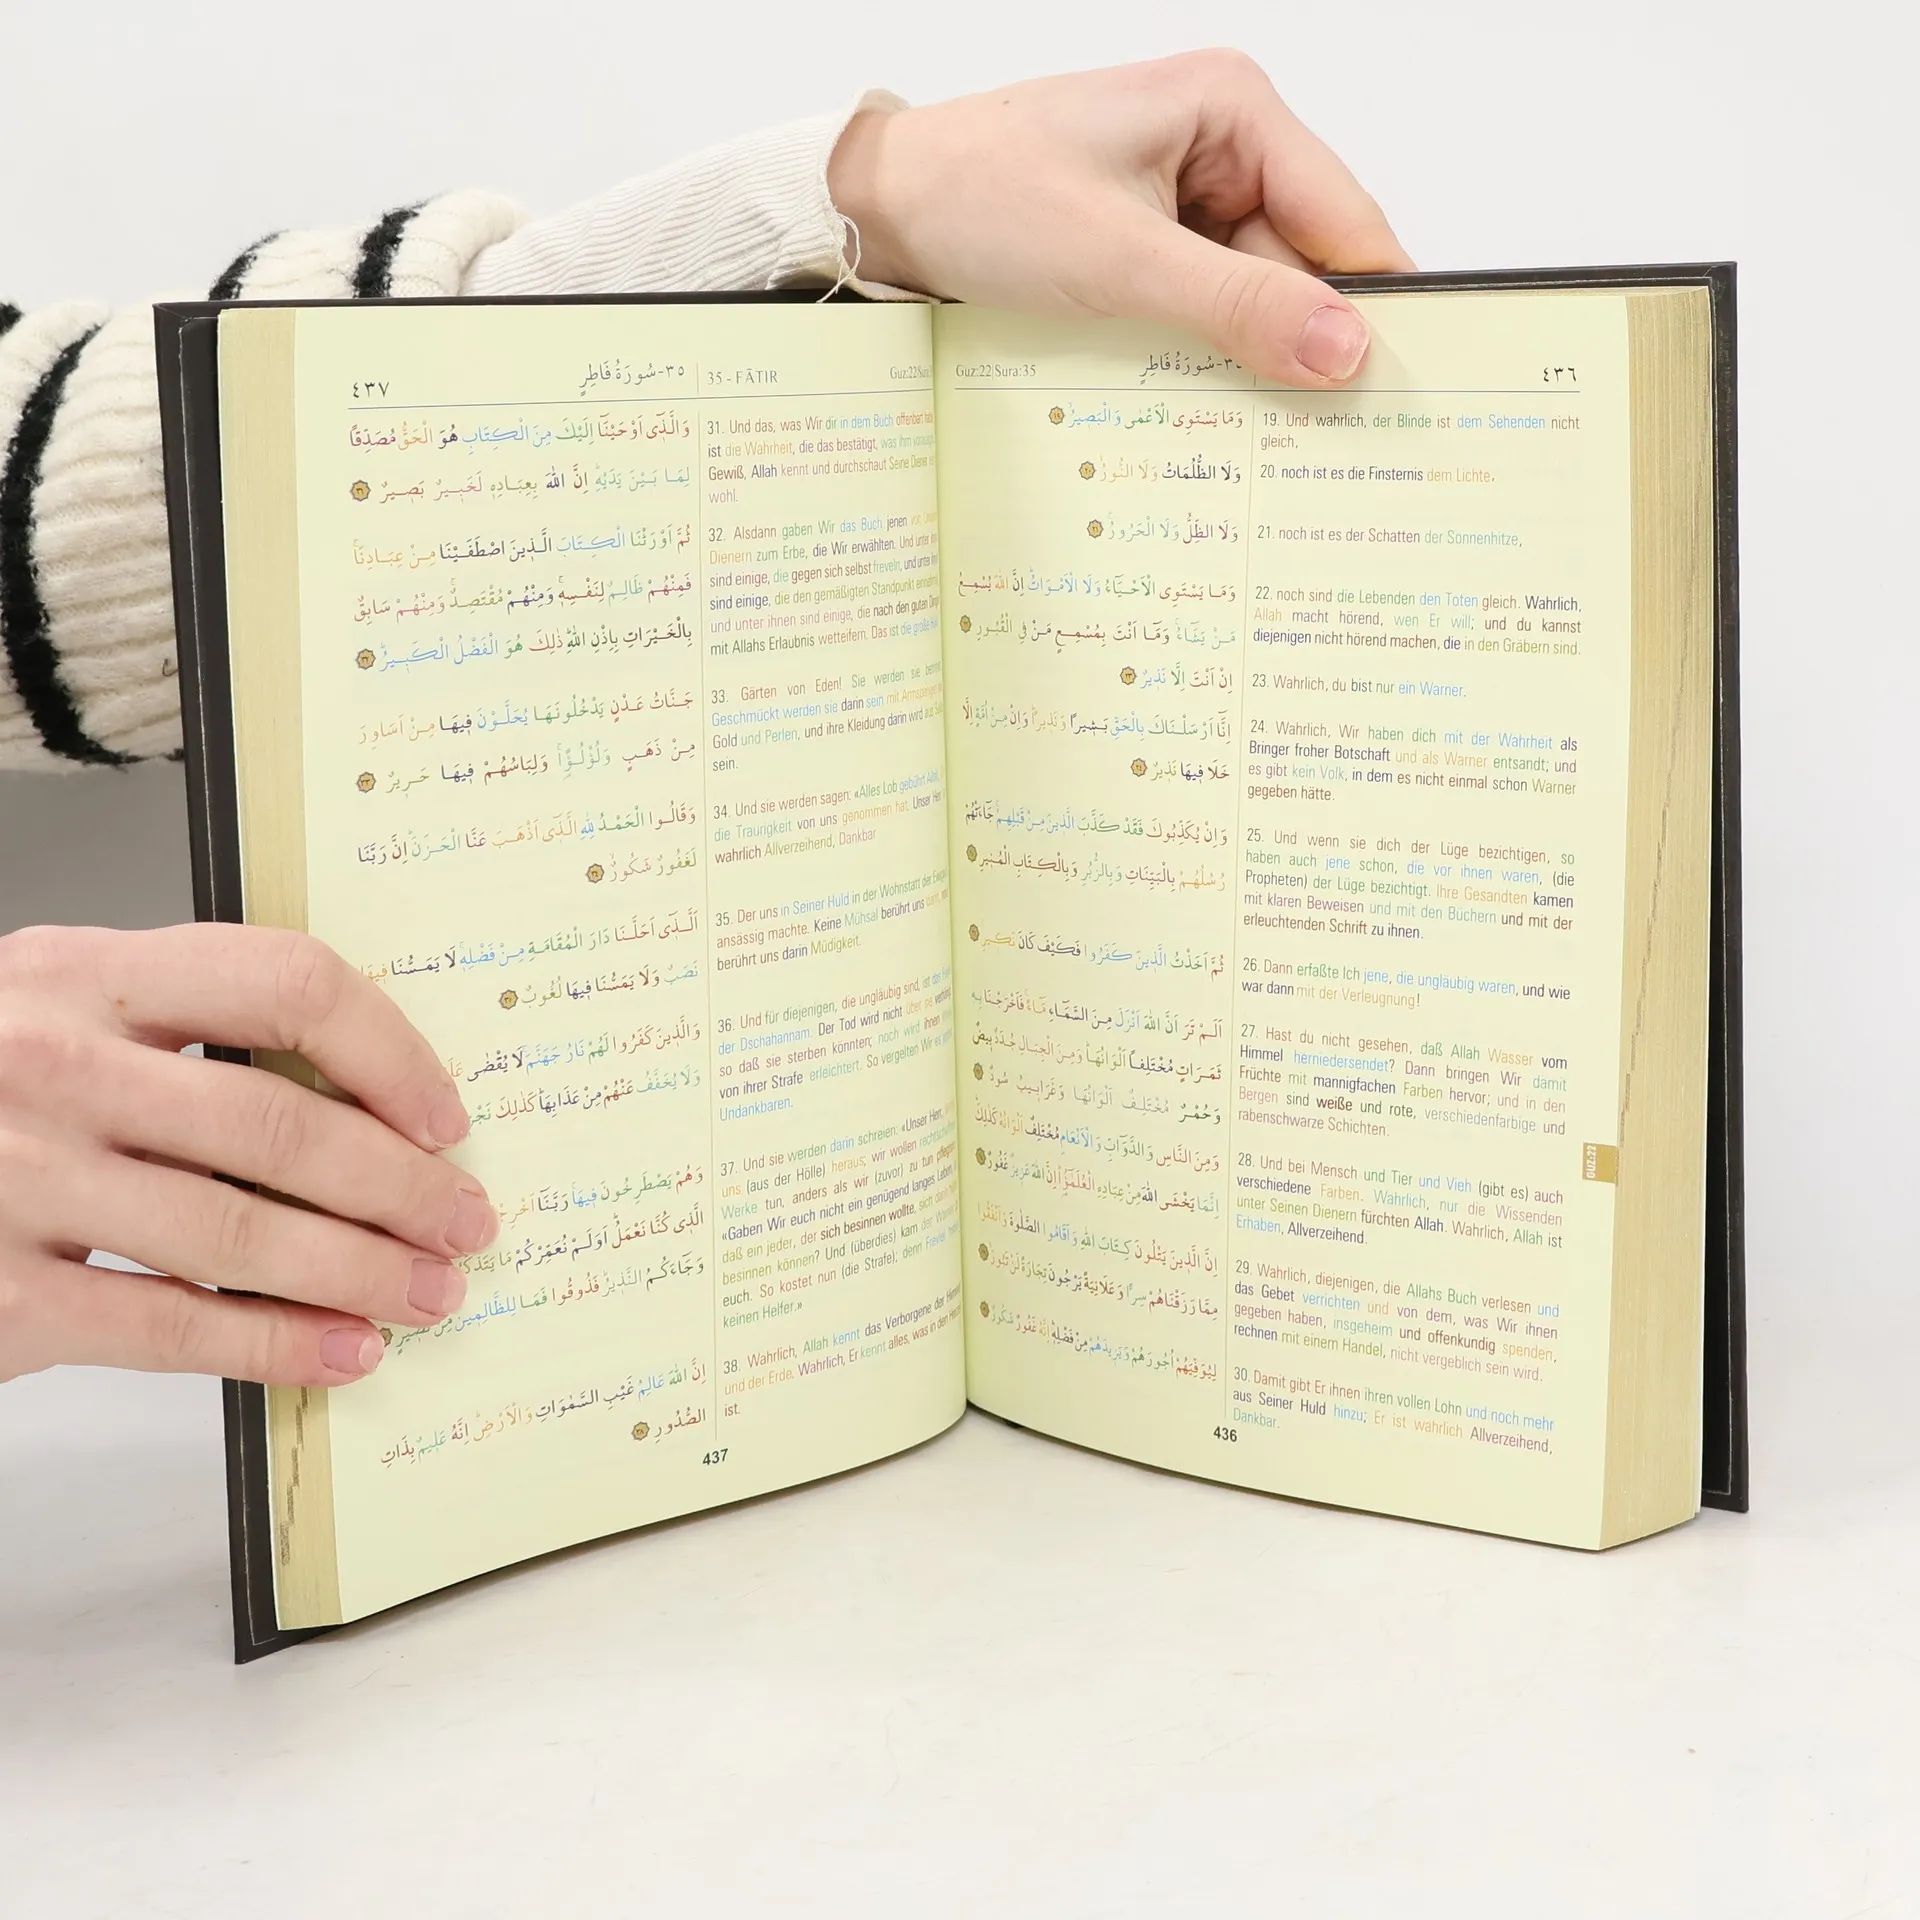 ٤٣٦
سُورَةُ فَاطِرٍ
Guz:22|Sura:35
وَمَا يَسْتَوِي الْاَعْمٰى وَالْبَصِيرُ ١٩
وَلَا الظُّلُمَاتُ وَلَا النُّورُ ٢٠
وَلَا الظِّلُّ وَلَا الْحَرُورُ ٢١
وَمَا يَسْتَوِي الْاَحْيَٓاءُ وَلَا الْاَمْوَاتُ اِنَّ اللّٰهَ يُسْمِعُ
مَنْ يَشَٓاءُ وَمَٓا اَنْتَ بِمُسْمِعٍ مَنْ فِي الْقُبُورِ ٢٢
اِنْ اَنْتَ اِلَّا نَذِيرٌ ٢٣
اِنَّٓا اَرْسَلْنَاكَ بِالْحَقِّ بَشِيراً وَنَذِيراً وَاِنْ مِنْ اُمَّةٍ اِلَّا
خَلَا فِيهَا نَذِيرٌ ٢٤
وَاِنْ يُكَذِّبُوكَ فَقَدْ كَذَّبَ الَّذِينَ مِنْ قَبْلِهِمْ جَٓاءَتْهُمْ
رُسُلُهُمْ بِالْبَيِّنَاتِ وَبِالزُّبُرِ وَبِالْكِتَابِ الْمُنِيرِ ٢٥
ثُمَّ اَخَذْتُ الَّذِينَ كَفَرُوا فَكَيْفَ كَانَ نَكِيرِ ٢٦
اَلَمْ تَرَ اَنَّ اللّٰهَ اَنْزَلَ مِنَ السَّمَٓاءِ مَٓاءً فَاَخْرَجْنَا بِهِ
ثَمَرَاتٍ مُخْتَلِفاً اَلْوَانُهَا وَمِنَ الْجِبَالِ جُدَدٌ بِيضٌ
وَحُمْرٌ مُخْتَلِفٌ اَلْوَانُهَا وَغَرَابِيبُ سُودٌ ٢٧
وَمِنَ النَّاسِ وَالدَّوَٓابِّ وَالْاَنْعَامِ مُخْتَلِفٌ اَلْوَانُهُ كَذٰلِكَ
اِنَّمَا يَخْشَى اللّٰهَ مِنْ عِبَادِهِ الْعُلَمٰٓؤُا اِنَّ اللّٰهَ عَزِيزٌ غَفُورٌ ٢٨
اِنَّ الَّذِينَ يَتْلُونَ كِتَابَ اللّٰهِ وَاَقَامُوا الصَّلٰوةَ وَاَنْفَقُوا
مِمَّا رَزَقْنَاهُمْ سِراًّ وَعَلَانِيَةً يَرْجُونَ تِجَارَةً لَنْ تَبُورَ ٢٩
لِيُوَفِّيَهُمْ اُجُورَهُمْ وَيَزِيدَهُمْ مِنْ فَضْلِهِ اِنَّهُ غَفُورٌ شَكُورٌ ٣٠
19. Und wahrlich, der Blinde ist dem Sehenden nicht
gleich,
20. noch ist es die Finsternis dem Lichte,
21. noch ist es der Schatten der Sonnenhitze,
22. noch sind die Lebenden den Toten gleich. Wahrlich,
Allah macht hörend, wen Er will; und du kannst
diejenigen nicht hörend machen, die in den Gräbern sind.
23. Wahrlich, du bist nur ein Warner.
24. Wahrlich, Wir haben dich mit der Wahrheit als
Bringer froher Botschaft und als Warner entsandt; und
es gibt kein Volk, in dem es nicht einmal schon Warner
gegeben hätte.
25. Und wenn sie dich der Lüge bezichtigen, so
haben auch jene schon, die vor ihnen waren, (die
Propheten) der Lüge bezichtigt. Ihre Gesandten kamen
mit klaren Beweisen und mit den Büchern und mit der
erleuchtenden Schrift zu ihnen.
26. Dann erfaßte Ich jene, die ungläubig waren, und wie
war dann mit der Verleugnung!
27. Hast du nicht gesehen, daß Allah Wasser vom
Himmel herniedersendet? Dann bringen Wir damit
Früchte mit mannigfachen Farben hervor; und in den
Bergen sind weiße und rote, verschiedenfarbige und
rabenschwarze Schichten.
28. Und bei Mensch und Tier und Vieh (gibt es) auch
verschiedene Farben. Wahrlich, nur die Wissenden
unter Seinen Dienern fürchten Allah. Wahrlich, Allah ist
Erhaben, Allverzeihend.
29. Wahrlich, diejenigen, die Allahs Buch verlesen und
das Gebet verrichten und von dem, was Wir ihnen
gegeben haben, insgeheim und offenkundig spenden,
rechnen mit einem Handel, nicht vergeblich sein wird.
30. Damit gibt Er ihnen ihren vollen Lohn und noch mehr
aus Seiner Huld hinzu; Er ist wahrlich Allverzeihend,
Dankbar.
436
GUZ:22
٤٣٧
٣٥-سُورَةُ فَاطِرٍ
35 - FĀTIR
Guz:22
وَالَّذِٓي اَوْحَيْنَٓا اِلَيْكَ مِنَ الْكِتَابِ هُوَ الْحَقُّ مُصَدِّقاً
لِمَا بَيْنَ يَدَيْهِ اِنَّ اللّٰهَ بِعِبَادِهِ لَخَبِيرٌ بَصِيرٌ ٣١
ثُمَّ اَوْرَثْنَا الْكِتَابَ الَّذِينَ اصْطَفَيْنَا مِنْ عِبَادِنَا
فَمِنْهُمْ ظَالِمٌ لِنَفْسِهِ وَمِنْهُمْ مُقْتَصِدٌ وَمِنْهُمْ سَابِقٌ
بِالْخَيْرَاتِ بِاِذْنِ اللّٰهِ ذٰلِكَ هُوَ الْفَضْلُ الْكَبِيرُ ٣٢
جَنَّاتُ عَدْنٍ يَدْخُلُونَهَا يُحَلَّوْنَ فِيهَا مِنْ اَسَاوِرَ
مِنْ ذَهَبٍ وَلُؤْلُؤاً وَلِبَاسُهُمْ فِيهَا حَرِيرٌ ٣٣
وَقَالُوا الْحَمْدُ لِلّٰهِ الَّذِٓي اَذْهَبَ عَنَّا الْحَزَنَ اِنَّ رَبَّنَا
لَغَفُورٌ شَكُورٌ ٣٤
اَلَّذِٓي اَحَلَّنَا دَارَ الْمُقَامَةِ مِنْ فَضْلِهِ لَا يَمَسُّنَا فِيهَا
نَصَبٌ وَلَا يَمَسُّنَا فِيهَا لُغُوبٌ ٣٥
وَالَّذِينَ كَفَرُوا لَهُمْ نَارُ جَهَنَّمَ لَا يُقْضٰى
وَلَا يُخَفَّفُ عَنْهُمْ مِنْ عَذَابِهَا كَذٰلِكَ
وَهُمْ يَصْطَرِخُونَ فِيهَا رَبَّنَٓا
الَّذِي كُنَّا نَعْمَلُ اَوَلَمْ نُعَمِّرْكُمْ مَا
وَجَٓاءَكُمُ النَّذِيرُ فَذُوقُوا فَمَا لِلظَّالِمِينَ مِنْ
اِنَّ اللّٰهَ عَالِمُ غَيْبِ السَّمٰوَاتِ وَالْاَرْضِ اِنَّهُ عَلِيمٌ بِذَاتِ
الصُّدُورِ ٣٨
31. Und das, was Wir dir in dem Buch offenbart
ist die Wahrheit, die das bestätigt, was ihm
Gewiß, Allah kennt und durchschaut Seine Diener
wohl.
32. Alsdann gaben Wir das Buch jenen von
Dienern zum Erbe, die Wir erwählten. Und unter
sind einige, die gegen sich selbst freveln, und unter
sind einige, die den gemäßigten Standpunkt
und unter ihnen sind einige, die nach den guten
mit Allahs Erlaubnis wetteifern. Das ist die große
33. Gärten von Eden! Sie werden sie
Geschmückt werden sie darin sein mit
Gold und Perlen, und ihre Kleidung darin wird aus
sein.
34. Und sie werden sagen: «Alles Lob gebührt
die Traurigkeit von uns genommen hat. Unser
wahrlich Allverzeihend, Dankbar
35. Der uns in Seiner Huld in der Wohnstatt der
ansässig machte. Keine Mühsal berührt uns
berührt uns darin Müdigkeit.
36. Und für diejenigen, die ungläubig sind, ist das
der Dschahannam. Der Tod wird nicht über sie
so daß sie sterben könnten; noch wird ihnen
von ihrer Strafe erleichtert. So vergelten Wir es
Undankbaren.
37. Und sie werden darin schreien: «Unser Herr,
uns (aus der Hölle) heraus; wir wollen
Werke tun, anders als wir (zuvor) zu tun
«Gaben Wir euch nicht ein genügend langes Leben,
daß ein jeder, der sich besinnen wollte, sich darin
besinnen können? Und (überdies) kam der Warner
euch. So kostet nun (die Strafe); denn Frevler
keinen Helfer.»
38. Wahrlich, Allah kennt das Verborgene der
und der Erde. Wahrlich, Er kennt alles, was in den
ist.
437